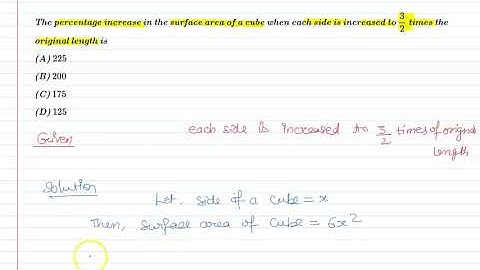 The percentage increase in the surface area of a cube when each side is increased to 3/2 times the
original length is
(A) 225
(B) 200
(C) 175
(D) 125
Given
each side is increased to 3/2 times of original
length
Solution
Let, side of a cube = x
Then, surface area of cube = 6x²